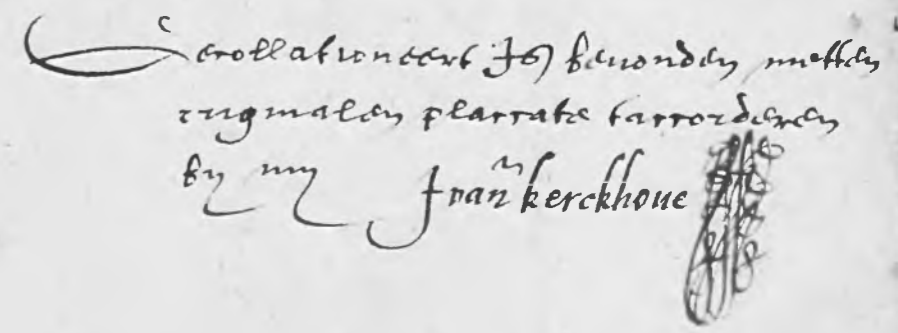 Gecollationeert Is beuonden metten
originalen placcate taccorderen
by my J van kerckhoue